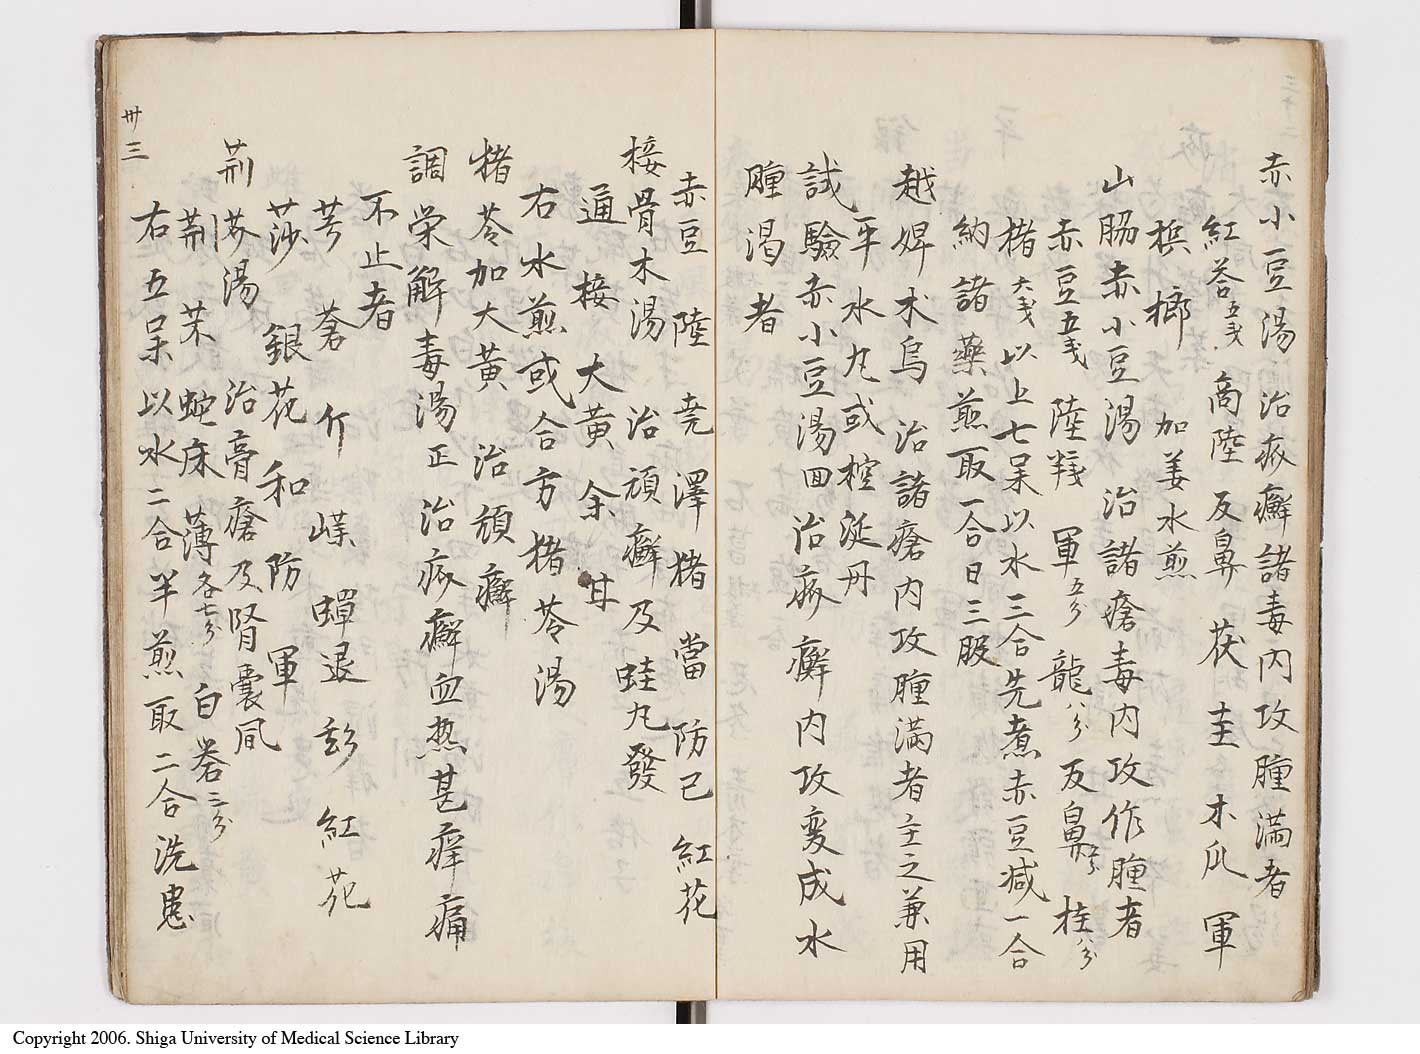 赤小豆湯治疥癬諸毒内攻腫満者
紅荅五戔 商陸 反鼻 茯 圭 木瓜 軍
檳榔 加姜水煎
山脇赤小豆湯 治諸瘡毒内攻作腫者
赤豆五戔 陸戔 軍五分 龍八分 反鼻五分 桂八分
楮大戔以上七味以水三合先煮赤豆減一合
納諸藥煎取一合日三服
越婢朮烏 治諸瘡内攻腫満者主之兼用
平水丸或控涎丹
試驗赤小豆湯回治疥癬内攻変成水
腫渇者
赤豆 陸 堯 澤 猪 當 防已 紅花
接骨木湯 治頑癬及蛙丸發
通 接 大黄 余 甘
右水煎或合方猪苓湯
猪苓加大黄 治頑癬
調栄解毒湯正治疥癬血熱甚痒痛
不止者
芎 蒼 介 嵘 蟬退 彭 紅花
莎 銀花 和 防 軍
荊芥湯 治膏瘡及腎嚢風
荊 朱 蛇床 薄各七分 白砦三分
右五味以水二合半煎取二合洗患
卅三
Copyright 2006. Shiga University of Medical Science Library